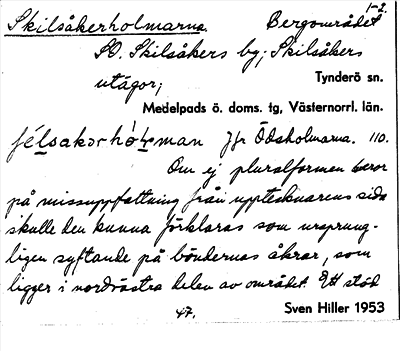 Skilsåkerholmarna. Bergområdet 1-2.
SO. Skilsåkers by; Skilsåkers
utägor; Tynderö sn.
Medelpads ö. doms. tg, Västernorrl. län.
Jfr Ödsholmarna. 110.
Om ej pluralformen beror
på missuppfattning från upptecknarens sida
skulle den kunna förklaras som ursprung-
ligen syftande på böndernas åkrar, som
ligger i nordvästra delen av området. Ett stöd
47. Sven Hiller 1953